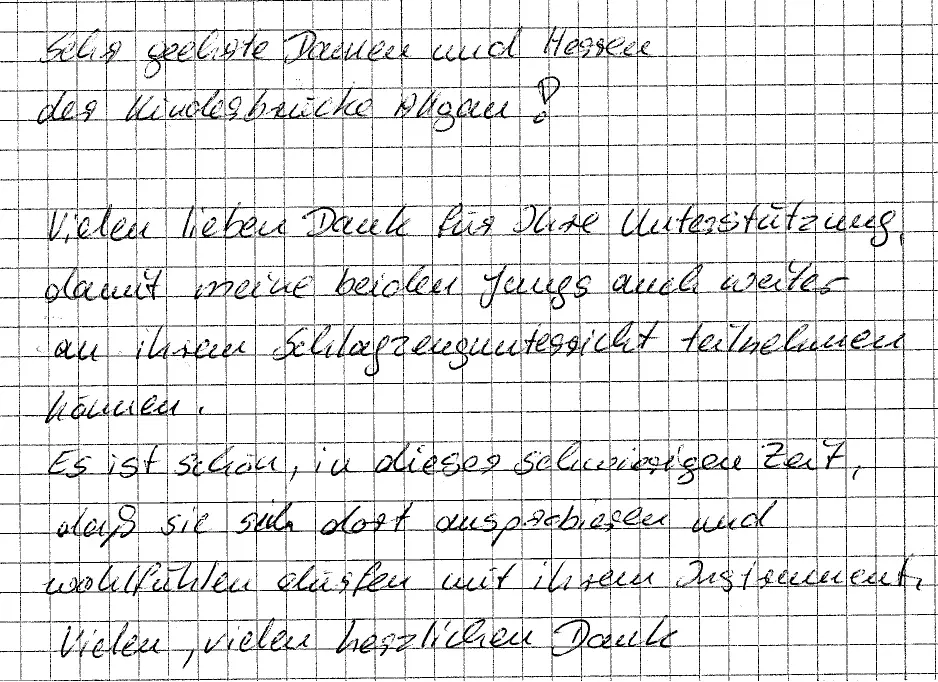 Sehr geehrte Damen und Herren
der Kinderbrücke Allgäu!
Vielen lieben Dank für Ihre Unterstützung,
damit meine beiden Jungs auch weiter
an ihrem Schlagzeugunterricht teilnehmen
können.
Es ist schön, in dieser schwierigen Zeit,
daß sie sich dort ausprobieren und
wohlfühlen dürfen mit ihrem Instrument.
Vielen, vielen herzlichen Dank